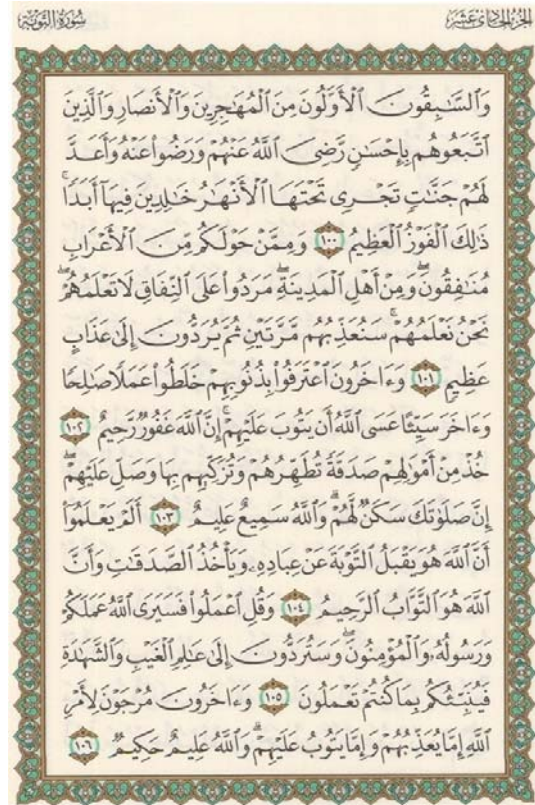 سُورَةُ التَّوْبَةِ
الجُزْءُ الحَادِي عَشَرَ
وَٱلسَّٰبِقُونَ ٱلْأَوَّلُونَ مِنَ ٱلْمُهَٰجِرِينَ وَٱلْأَنصَارِ وَٱلَّذِينَ
ٱتَّبَعُوهُم بِإِحْسَٰنٍ رَّضِىَ ٱللَّهُ عَنْهُمْ وَرَضُوا۟ عَنْهُ وَأَعَدَّ
لَهُمْ جَنَّٰتٍ تَجْرِى تَحْتَهَا ٱلْأَنْهَٰرُ خَٰلِدِينَ فِيهَآ أَبَدًا ۚ
ذَٰلِكَ ٱلْفَوْزُ ٱلْعَظِيمُ ١٠٠ وَمِمَّنْ حَوْلَكُم مِّنَ ٱلْأَعْرَابِ
مُنَٰفِقُونَ ۖ وَمِنْ أَهْلِ ٱلْمَدِينَةِ ۖ مَرَدُوا۟ عَلَى ٱلنِّفَاقِ لَا تَعْلَمُهُمْ ۖ
نَحْنُ نَعْلَمُهُمْ ۚ سَنُعَذِّبُهُم مَّرَّتَيْنِ ثُمَّ يُرَدُّونَ إِلَىٰ عَذَابٍ
عَظِيمٍ ١٠١ وَءَاخَرُونَ ٱعْتَرَفُوا۟ بِذُنُوبِهِمْ خَلَطُوا۟ عَمَلًا صَٰلِحًا
وَءَاخَرَ سَيِّئًا عَسَى ٱللَّهُ أَن يَتُوبَ عَلَيْهِمْ ۚ إِنَّ ٱللَّهَ غَفُورٌ رَّحِيمٌ ١٠٢
خُذْ مِنْ أَمْوَٰلِهِمْ صَدَقَةً تُطَهِّرُهُمْ وَتُزَكِّيهِم بِهَا وَصَلِّ عَلَيْهِمْ ۖ
إِنَّ صَلَوٰتَكَ سَكَنٌ لَّهُمْ ۗ وَٱللَّهُ سَمِيعٌ عَلِيمٌ ١٠٣ أَلَمْ يَعْلَمُوٓا۟
أَنَّ ٱللَّهَ هُوَ يَقْبَلُ ٱلتَّوْبَةَ عَنْ عِبَادِهِۦ وَيَأْخُذُ ٱلصَّدَقَٰتِ وَأَنَّ
ٱللَّهَ هُوَ ٱلتَّوَّابُ ٱلرَّحِيمُ ١٠٤ وَقُلِ ٱعْمَلُوا۟ فَسَيَرَى ٱللَّهُ عَمَلَكُمْ
وَرَسُولُهُۥ وَٱلْمُؤْمِنُونَ ۖ وَسَتُرَدُّونَ إِلَىٰ عَٰلِمِ ٱلْغَيْبِ وَٱلشَّهَٰدَةِ
فَيُنَبِّئُكُم بِمَا كُنتُمْ تَعْمَلُونَ ١٠٥ وَءَاخَرُونَ مُرْجَوْنَ لِأَمْرِ
ٱللَّهِ إِمَّا يُعَذِّبُهُمْ وَإِمَّا يَتُوبُ عَلَيْهِمْ ۗ وَٱللَّهُ عَلِيمٌ حَكِيمٌ ١٠٦